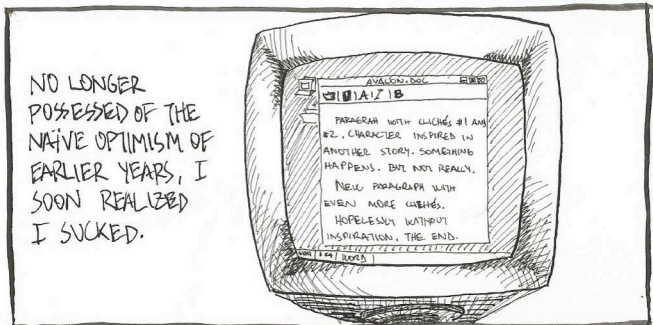 NO LONGER
POSSESSED OF THE
NAÏVE OPTIMISM OF
EARLIER YEARS, I
SOON REALIZED
I SUCKED.
AVALON.DOC
PARAGRAH WITH CLICHÉS #1 AND
#2, CHARACTER INSPIRED IN
ANOTHER STORY. SOMETHING
HAPPENS. BUT NOT REALLY.
NEW PARAGRAPH WITH
EVEN MORE CLICHÉS.
HOPELESSLY WITHOUT
INSPIRATION, THE END.
WORD